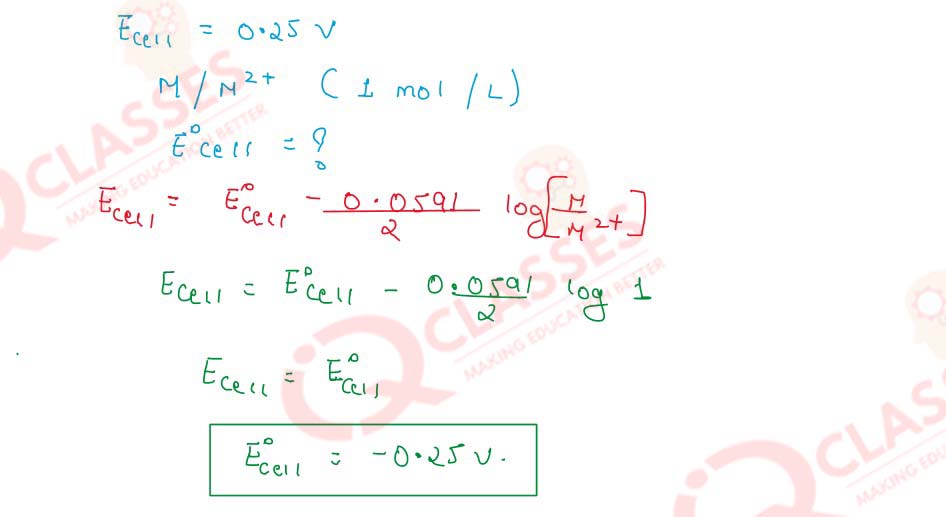 Ecell = 0.25 V
M/M²⁺ (1 mol/L)
E°cell = ?
Ecell = E°cell - 0.0591/2 log[M/M²⁺]
Ecell = E°cell - 0.0591/2 log 1
Ecell = E°cell
E°cell = -0.25 V.
IQ CLASSES
MAKING EDUCATION BETTER
IQ CLASSES
MAKING EDUCATION BETTER
IQ CLASSES
MAKING EDUCATION